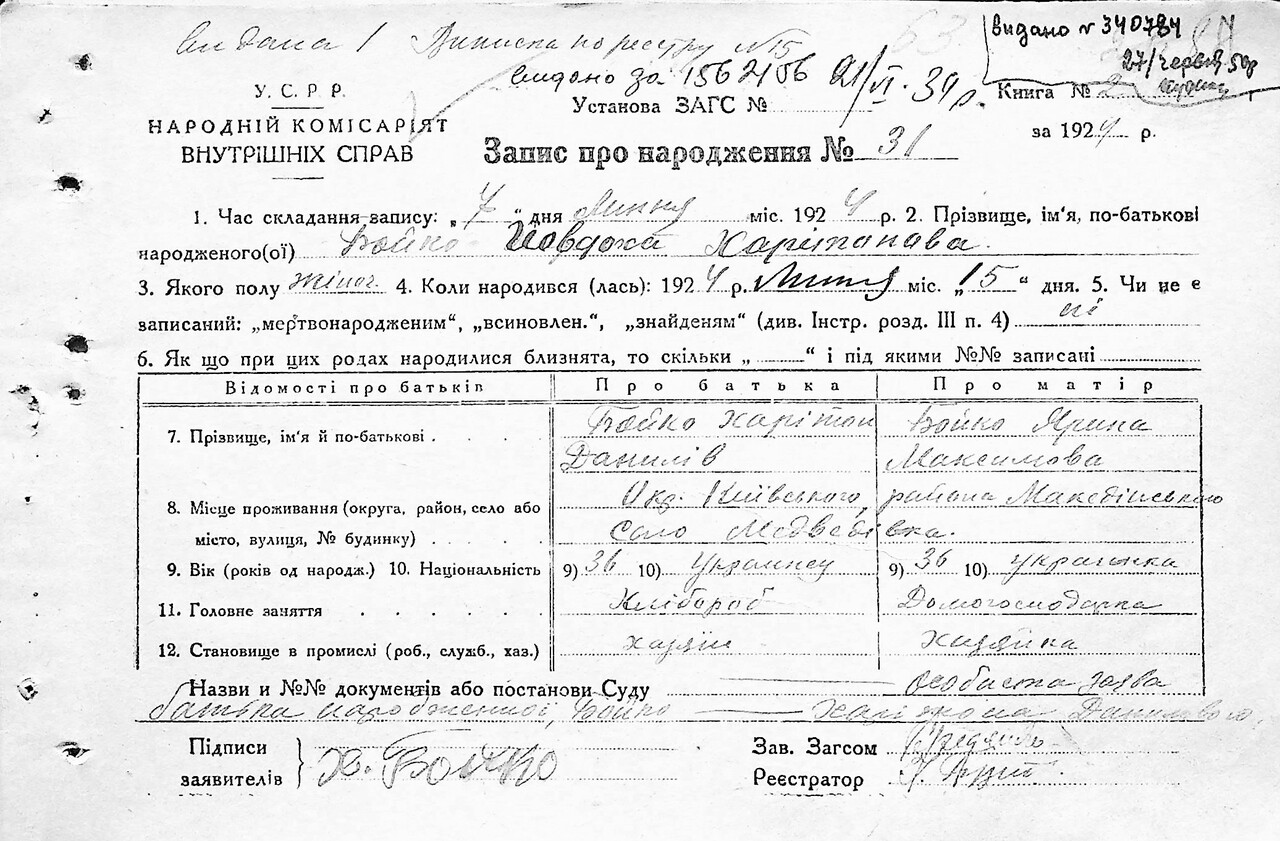 видана 1 Виписка по реєстру №15
видано за 1562156 21/VI-39 р.
видано № 340784
27/червня 50р
У. С. Р. Р.
НАРОДНІЙ КОМІСАРІЯТ
ВНУТРІШНІХ СПРАВ
Установа ЗАГС №
Книга № 2
за 1924 р.
Запис про народження № 31
1. Час складання запису: „7“ дня Липня міс. 1924 р. 2. Прізвище, ім'я, по-батькові
народженого(ої) Бойко Йовдоха Харітонова.
3. Якого полу жіноч. 4. Коли народився (лась): 1924 р. Липня міс. „15“ дня. 5. Чи не є
записаний: „мертвонародженим“, „всиновлен.“, „знайденям“ (див. Інстр. розд. III п. 4) ні
6. Як що при цих родах народилися близнята, то скільки „ “ і під якими №№ записані
Відомості про батьків Про батька Про матір
7. Прізвище, ім'я й по-батькові Бойко Харітон Бойко Ярина
Данилів Максимова
8. Місце проживання (округа, район, село або Окр. Київського, района Макєдінського
місто, вулиця, № будинку) Село Медведівка.
9. Вік (років од народж.) 10. Національність 9) 36 10) Украинец 9) 36 10) українка
11. Головне заняття Хлібороб Домогосподарка
12. Становище в промислі (роб., служб., хаз.) хазяін Хазяйка
Назви и №№ документів або постанови Суду особиста заява
батька народженної, Бойко Харітона Данилового.
Підписи
заявителів Х. Бойко
Зав. Загсом
Реєстратор